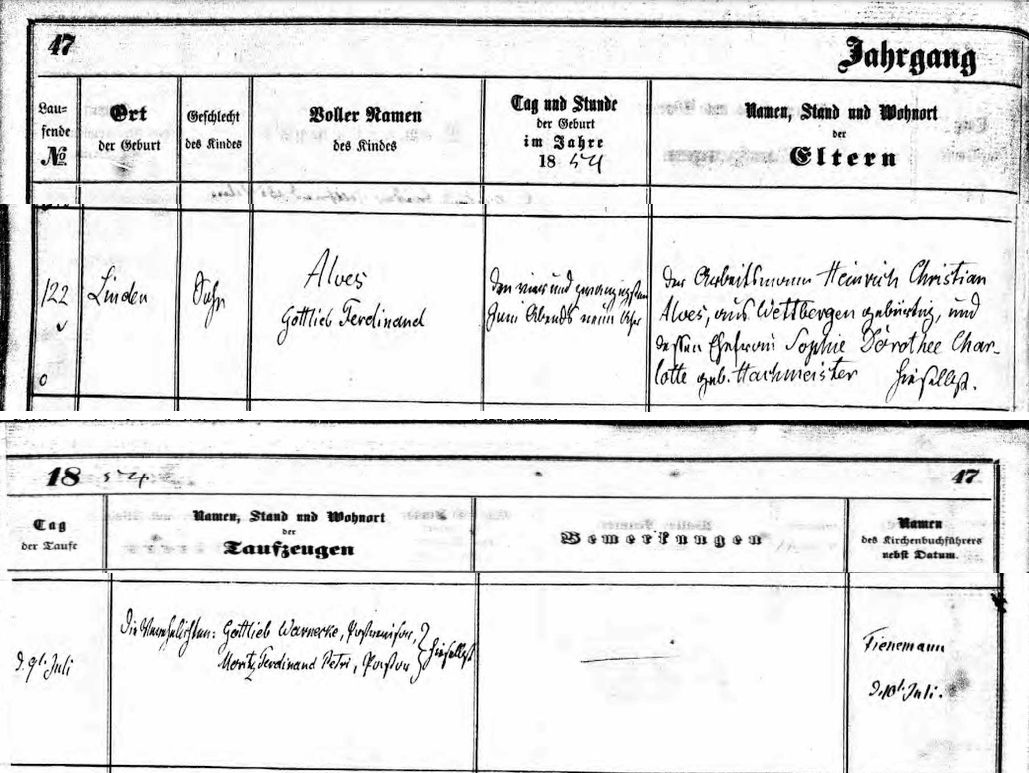 47
Jahrgang
Lau=
fende
No
Ort
der Geburt
Geschlecht
des Kindes
Voller Namen
des Kindes
Tag und Stunde
der Geburt
im Jahre
18 54
Namen, Stand und Wohnort
der
Eltern
122
Linden
Sohn
Alves
Gottlieb Ferdinand
den vier und zwanzigsten
Juni Abends neun Uhr
der Arbeitsmann Heinrich Christian
Alves, aus Wettbergen gebürtig, und
dessen Ehefrau Sophie Dorothee Char-
lotte geb. Hachmeister hieselbst.
18 54.
47
Tag
der Taufe
Namen, Stand und Wohnort
der
Taufzeugen
Bemerkungen
Namen
des Kirchenbuchführers
nebst Datum.
d. 9t. Juli
Gottlieb Warnecke,
Moritz Ferdinand Petri, Pastor
hieselbst
Fienemann
d. 10t. Juli.